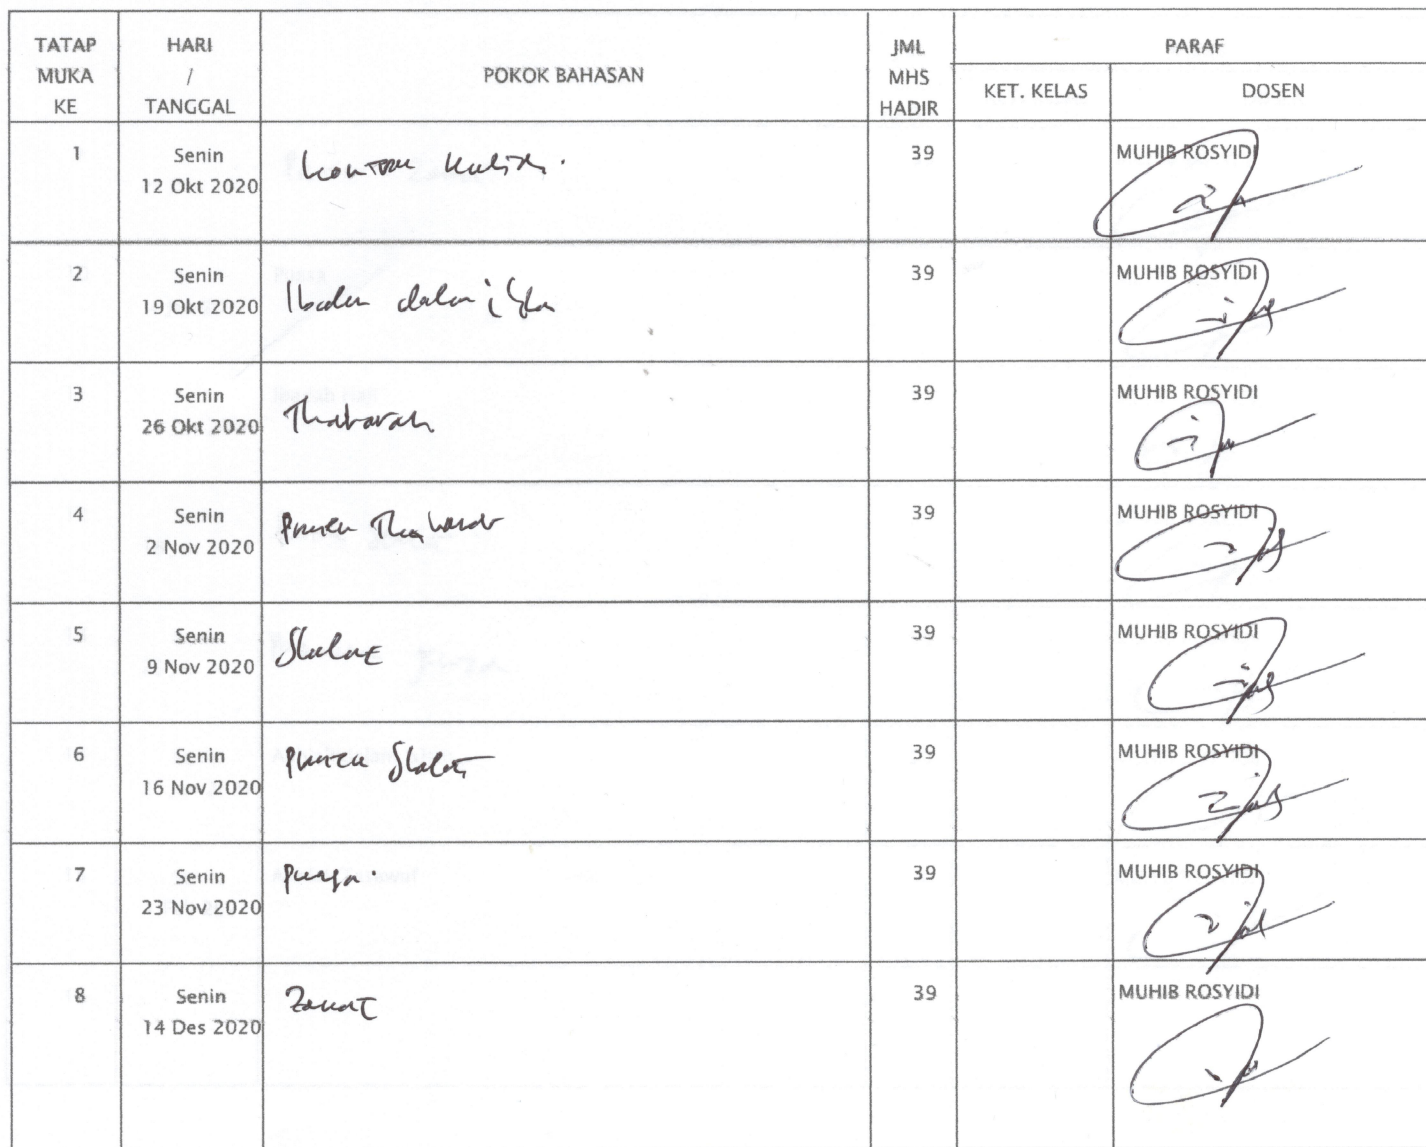 TATAP MUKA KE
HARI / TANGGAL
POKOK BAHASAN
JML MHS HADIR
PARAF
KET. KELAS
DOSEN
1
Senin
12 Okt 2020
Kontrak Kuliah.
39
MUHIB ROSYIDI
2
Senin
19 Okt 2020
Ibadah dalam islam
39
MUHIB ROSYIDI
3
Senin
26 Okt 2020
Thaharah
39
MUHIB ROSYIDI
4
Senin
2 Nov 2020
Thaharah
39
MUHIB ROSYIDI
5
Senin
9 Nov 2020
Shalat
39
MUHIB ROSYIDI
6
Senin
16 Nov 2020
Shalat
39
MUHIB ROSYIDI
7
Senin
23 Nov 2020
Puasa.
39
MUHIB ROSYIDI
8
Senin
14 Des 2020
Zakat
39
MUHIB ROSYIDI